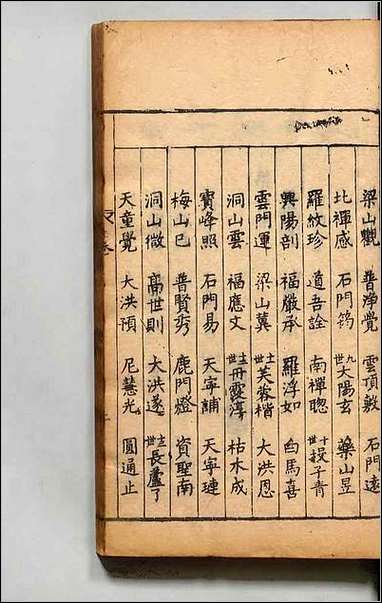 梁山觀 普淨覺 雲頂敷 石門遠
北禪感 石門筠 九世大陽玄 藥山昱
羅紋珍 道吾詮 南禪聰 十世投子青
興陽剖 福嚴承 羅浮如 白馬喜
雲門運 梁山冀 十一世芙蓉楷 大洪恩
洞山雲 福應文 十二世丹霞淳 枯木成
寶峰照 石門易 天寧誧 天寧璉
梅山己 普賢秀 鹿門燈 資聖南
洞山微 高世則 大洪遂 十三世長蘆了
天童覺 大洪預 尼慧光 圓通止